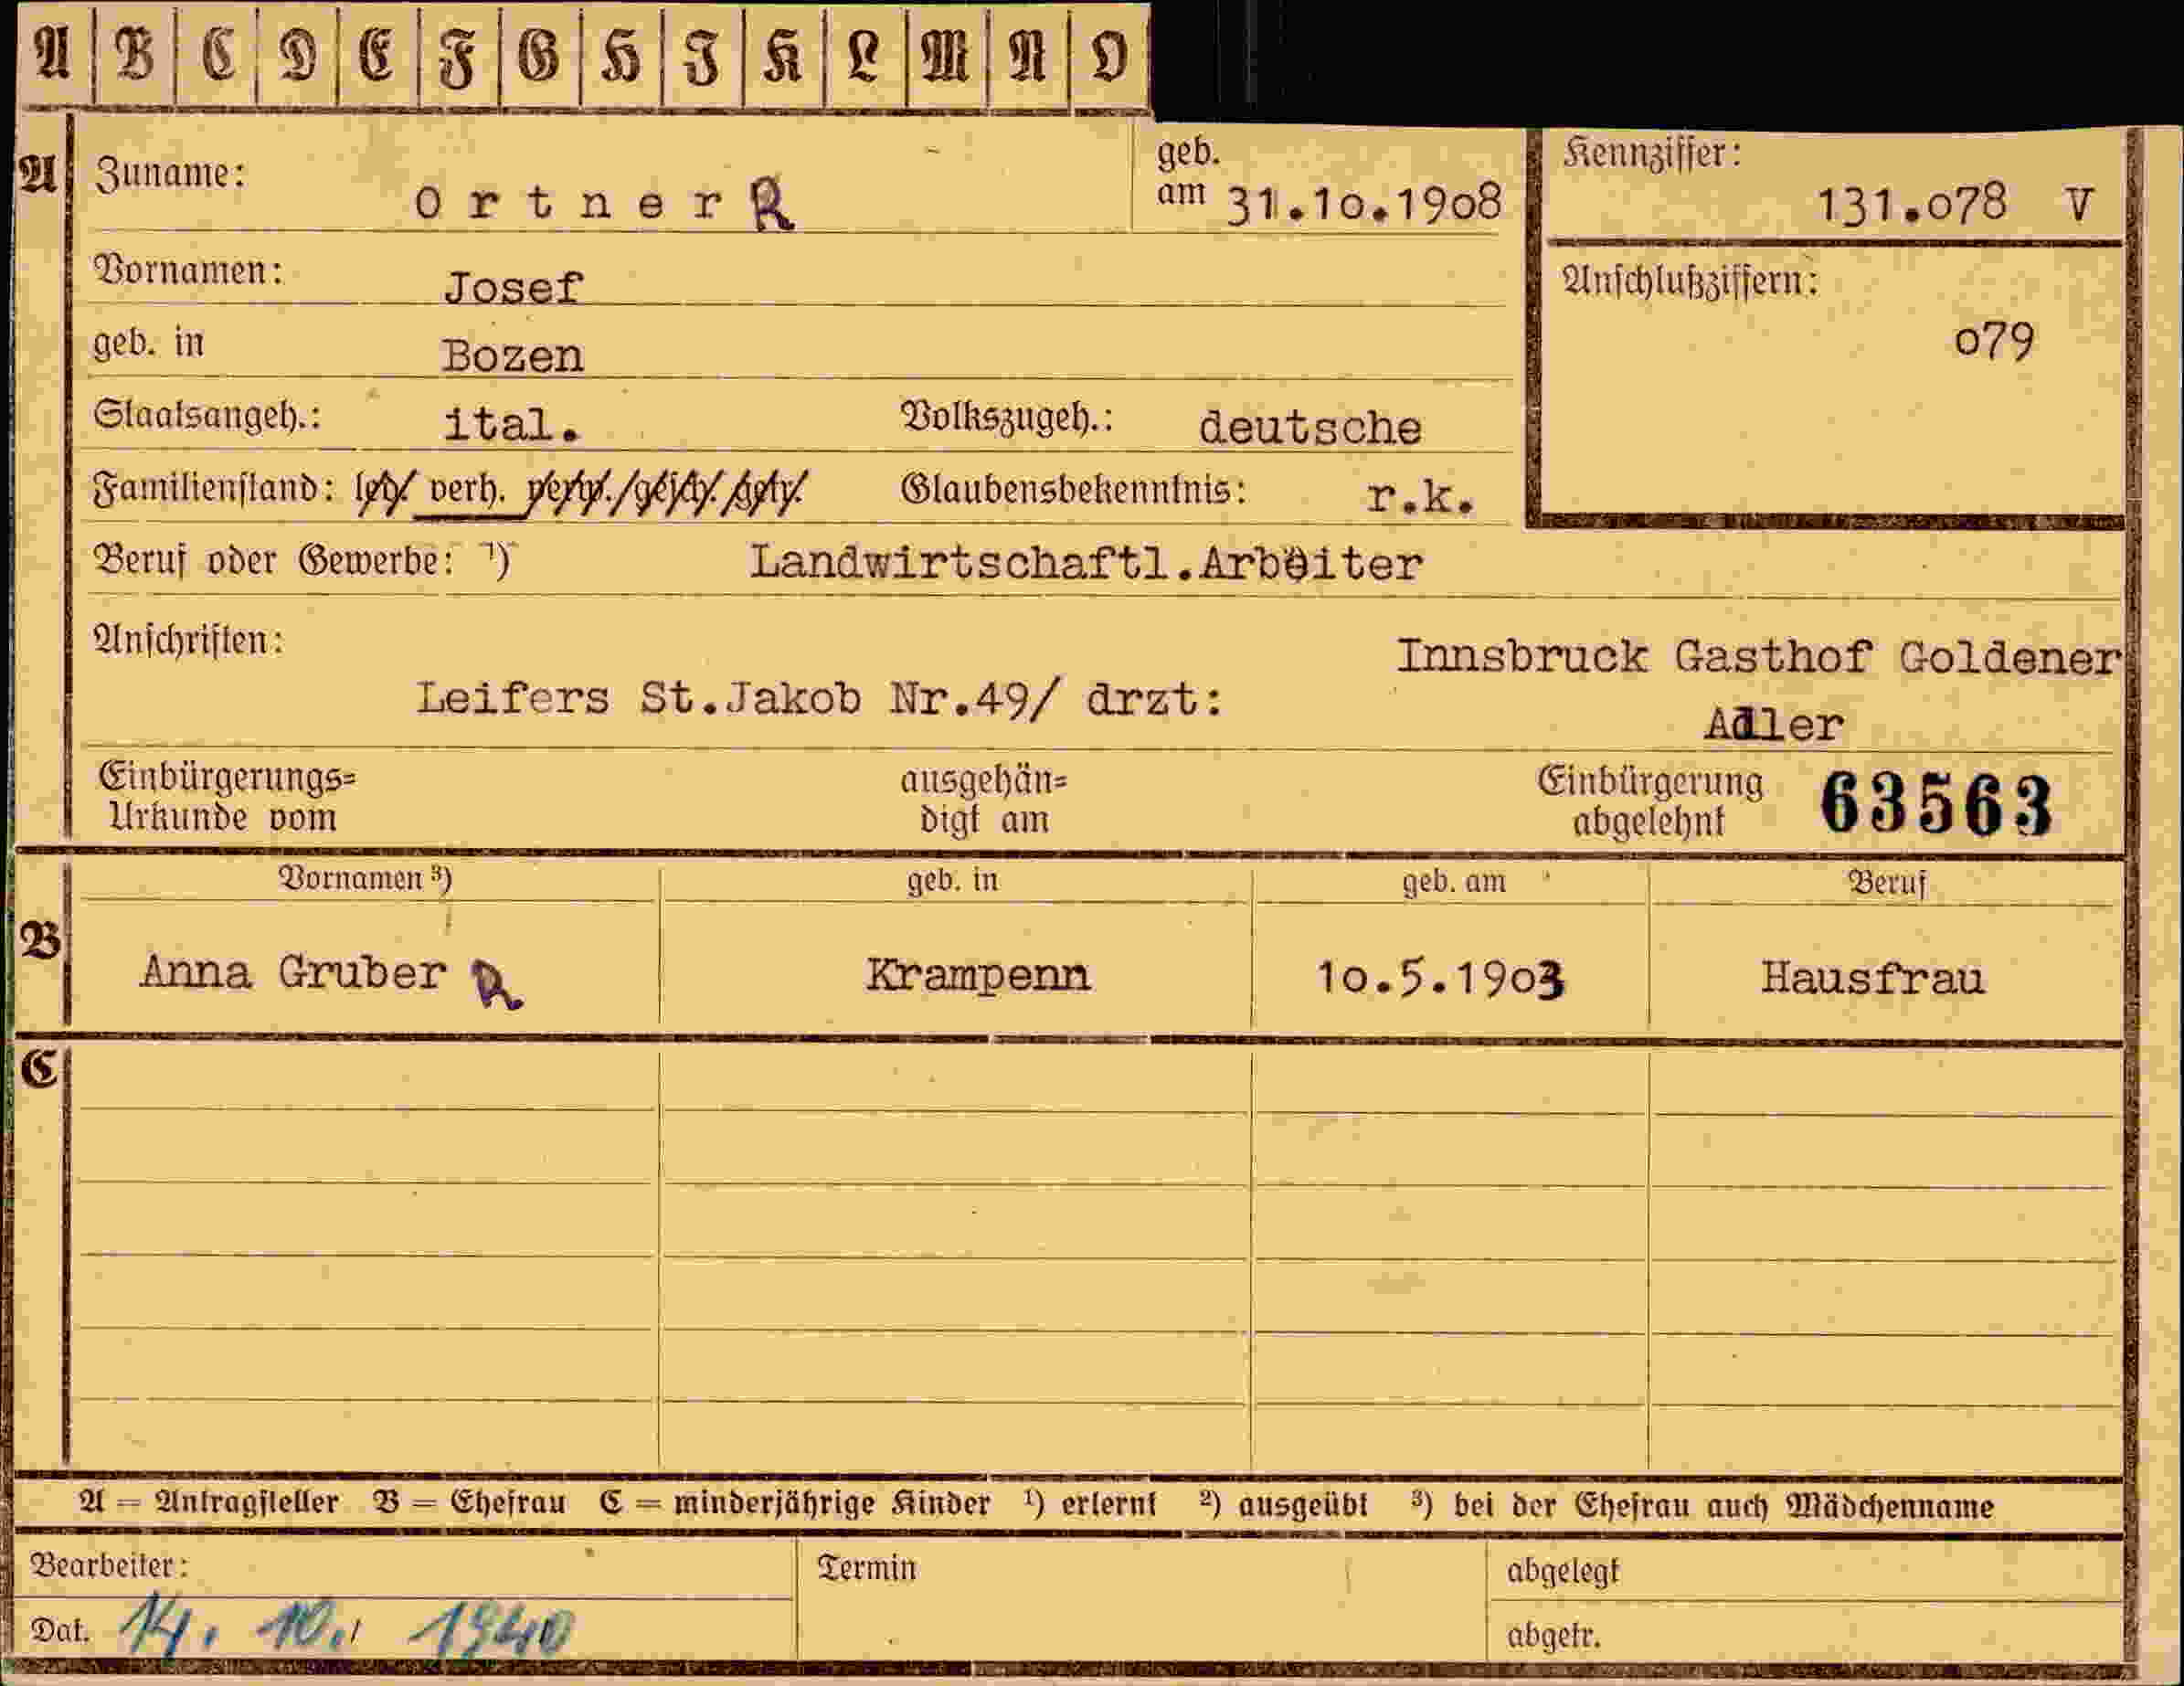 A B C D E F G H I K L M N O
A Zuname: OrtnerR geb. am 31.10.1908 Kennziffer: 131.078 V
Vornamen: Josef Anschlußziffern: 079
geb. in Bozen
Staatsangeh.: ital. Volkszugeh.: deutsche
Familienstand: led./ verh. verw./gesch./getr. Glaubensbekenntnis: r.k.
Beruf oder Gewerbe: ¹) Landwirtschaftl.Arbeiter
Anschriften: Innsbruck Gasthof Goldener
Leifers St.Jakob Nr.49/ drzt: Adler
Einbürgerungs= ausgehän= Einbürgerung 63563
Urkunde vom digt am abgelehnt
Vornamen ³) geb. in geb. am Beruf
B Anna Gruber R Krampenn 10.5.1903 Hausfrau
C
A = Antragsteller B = Ehefrau C = minderjährige Kinder ¹) erlernt ²) ausgeübt ³) bei der Ehefrau auch Mädchenname
Bearbeiter: Termin abgelegt
Dat. 14. 10. 1940 abgetr.